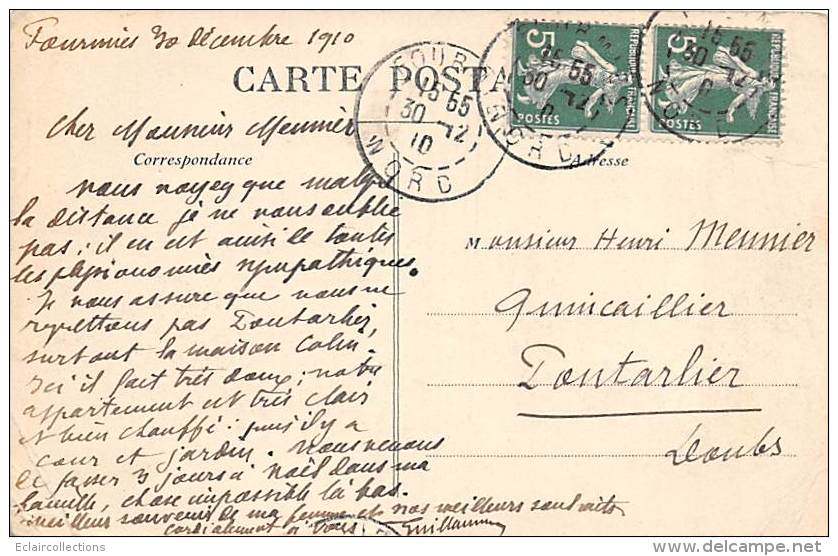 Fourmies 30 décembre 1910
CARTE POSTA
Cher Monsieur Meunier
Correspondance
Adresse
vous voyez que malgré
la distance je ne vous oublie
pas; il en est ainsi de toutes
les physionomies sympathiques.
Je vous assure que nous ne
regrettons pas Pontarlier,
surtout la maison Colin.
Ici il fait très doux; notre
appartement est très clair
et bien chauffé; puis il y a
cour et jardin. Nous venons
de passer 3 jours à Noël dans ma
famille, chose impossible là bas.
Meilleur souvenir de ma femme et nos meilleurs souhaits
cordialement à vous Guillaume
Monsieur Henri Meunier
Quincaillier
Pontarlier
Doubs
FOUR
15 55
30 -12
10
NORD
5
POSTES
REPUBLIQUE FRANÇAISE
15 55
30 -12
NORD
5
POSTES
REPUBLIQUE FRANÇAISE
15 55
30 -12
© Eclaircollections
delcampe.net